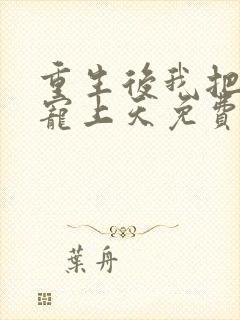 重生後我把
寵上天免費
葉舟